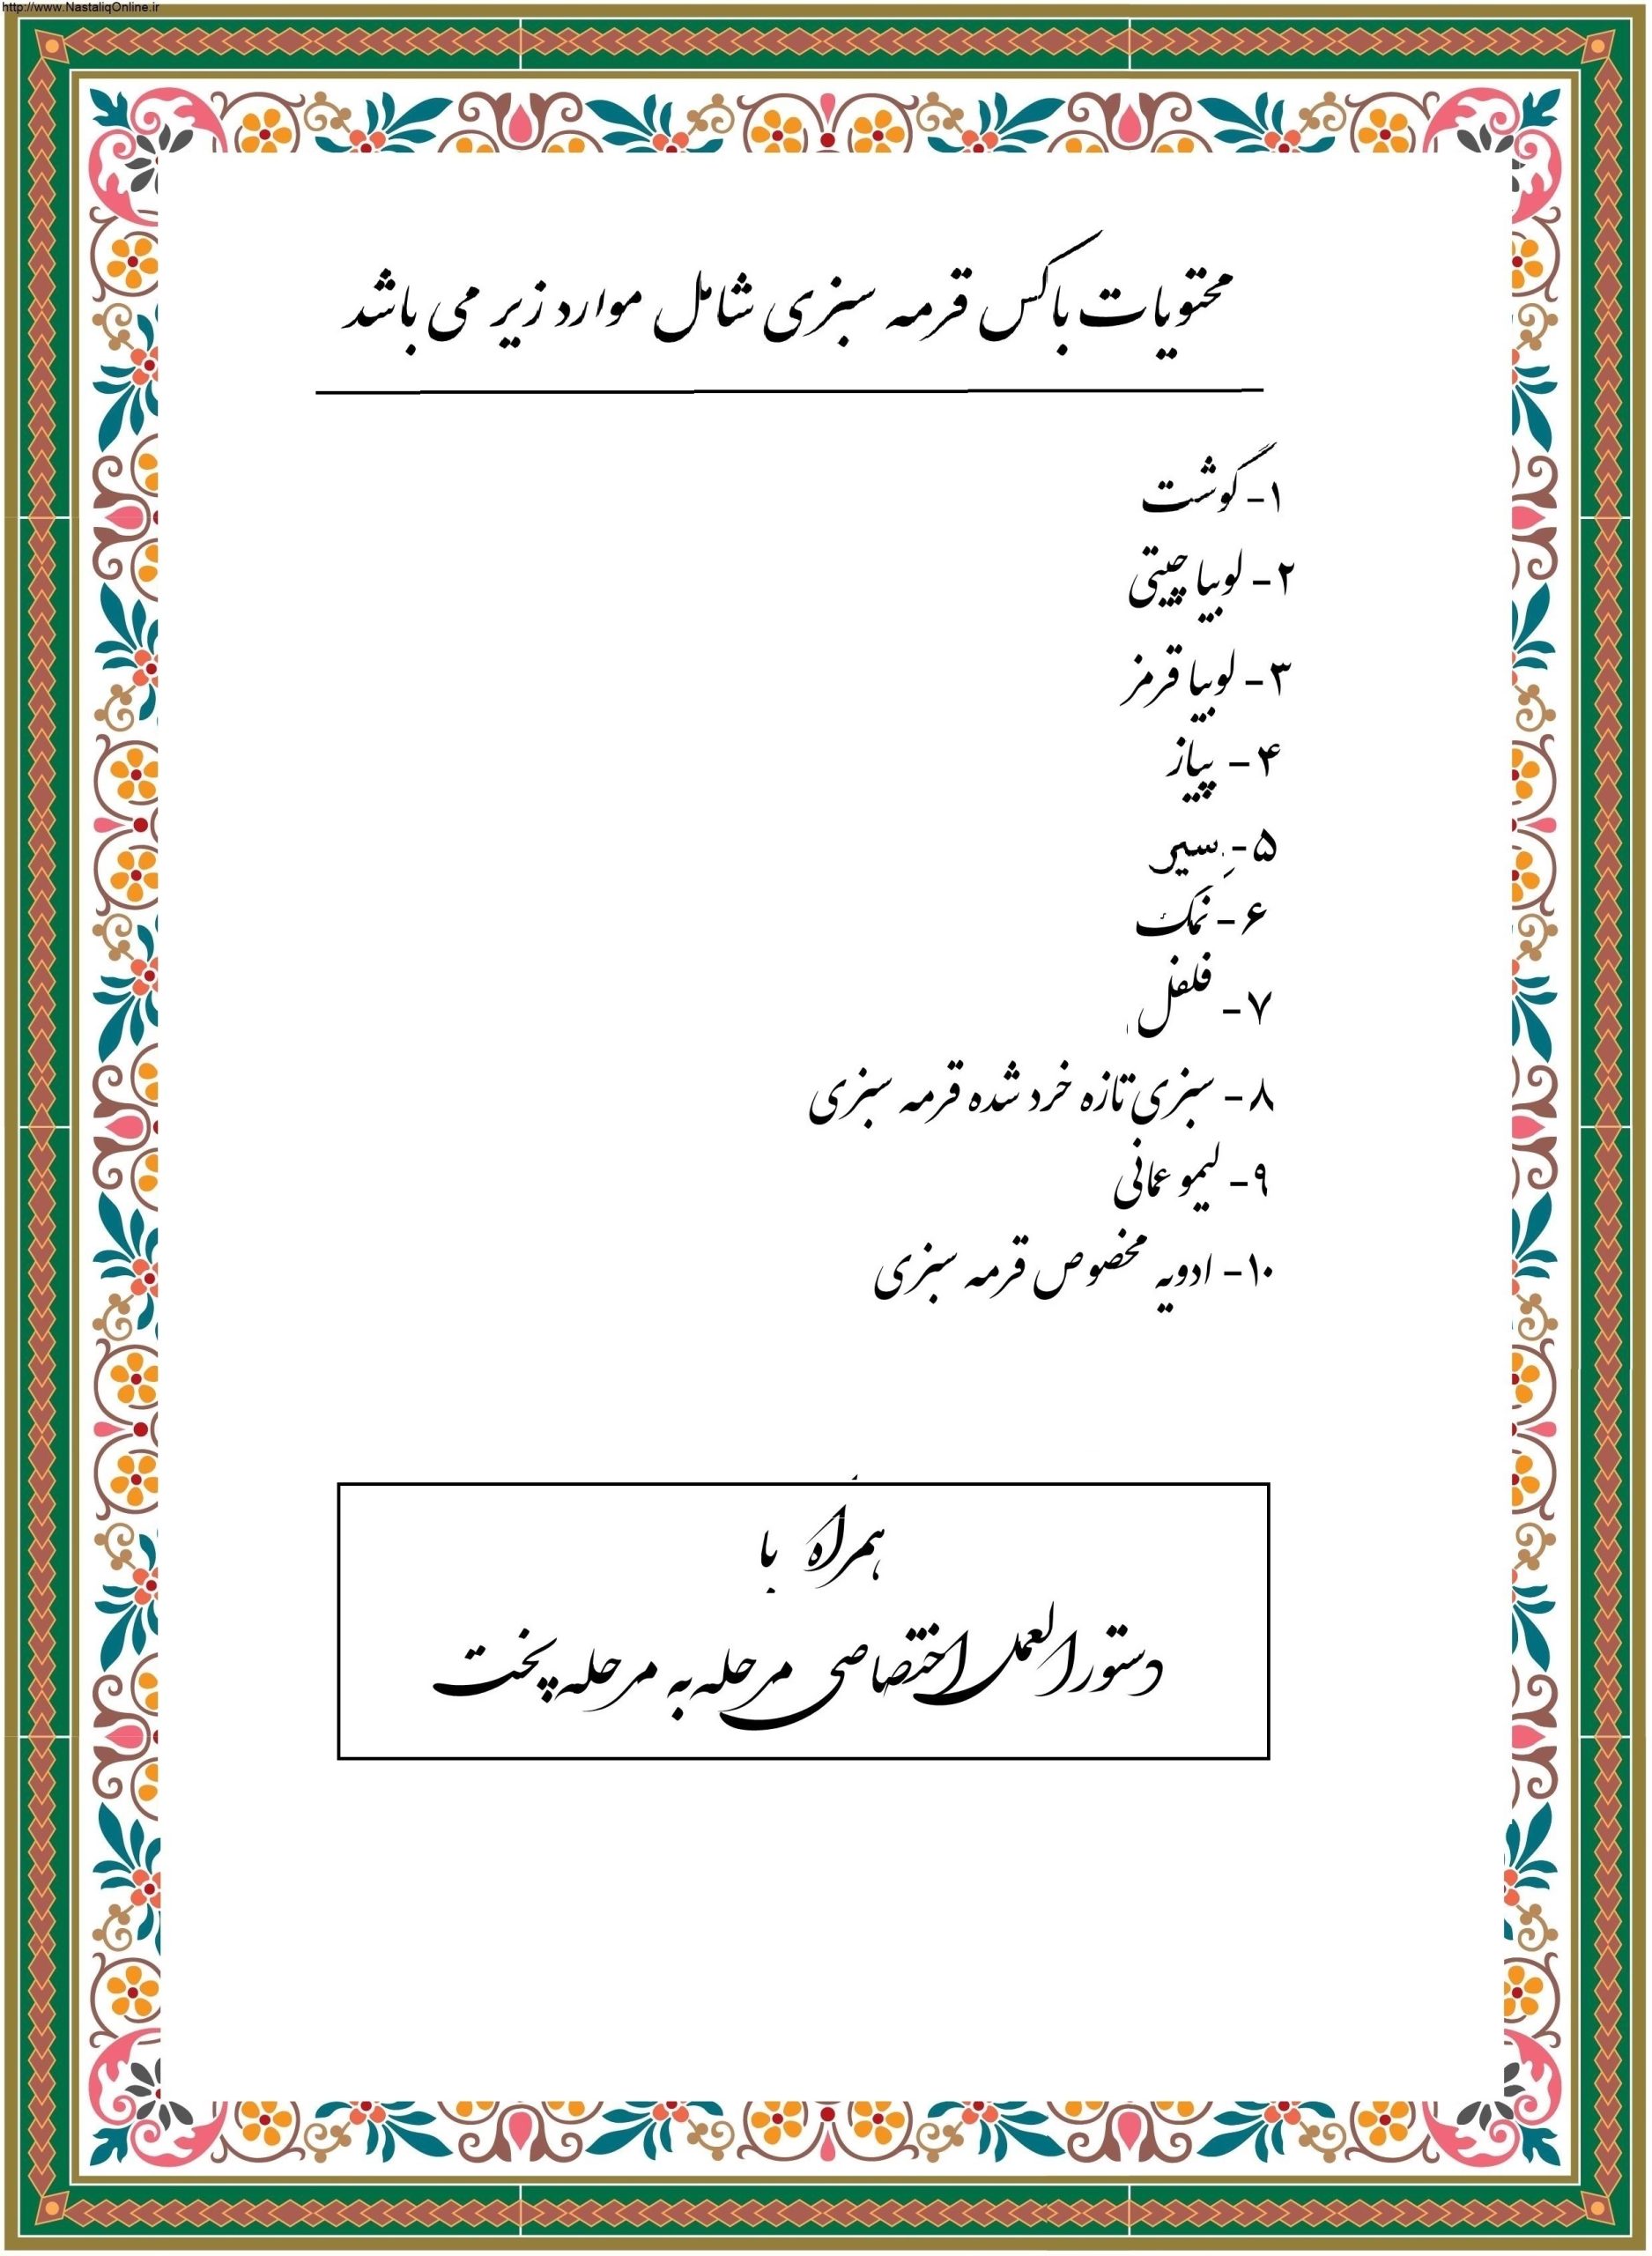 http://www.NastaliqOnline.ir
محتویات باکس قرمه سبزی شامل موارد زیر می باشد
۱- گوشت
۲- لوبیا چیتی
۳- لوبیا قرمز
۴- پیاز
۵- سیر
۶- نمک
۷- فلفل
۸- سبزی تازه خرد شده قرمه سبزی
۹- لیمو عمانی
۱۰- ادویه مخصوص قرمه سبزی
همراه با
دستورالعمل اختصاصی مرحله به مرحله پخت